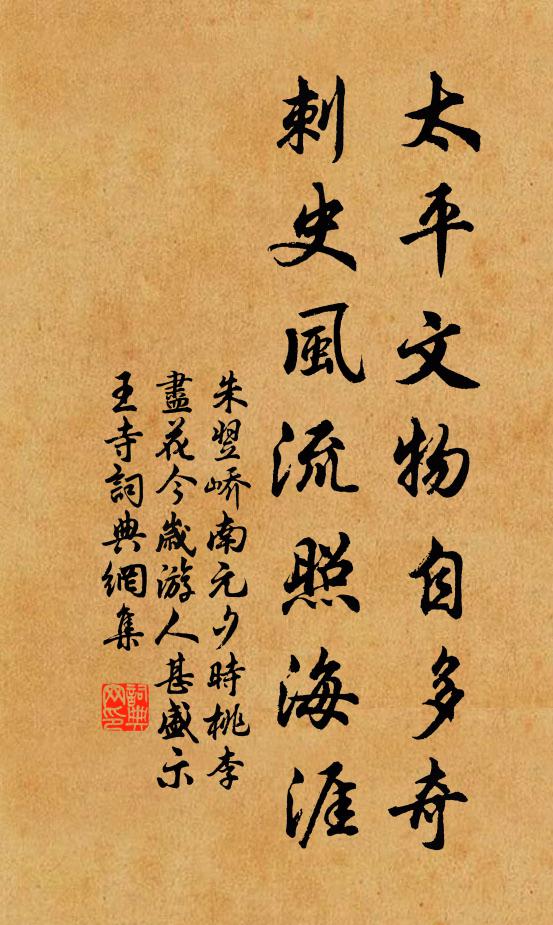 太平文物自多奇
刺史風流照海涯
朱翌嶠南元夕時桃李
盡花今歲游人甚盛示
王寺詞典網集
詞典網印